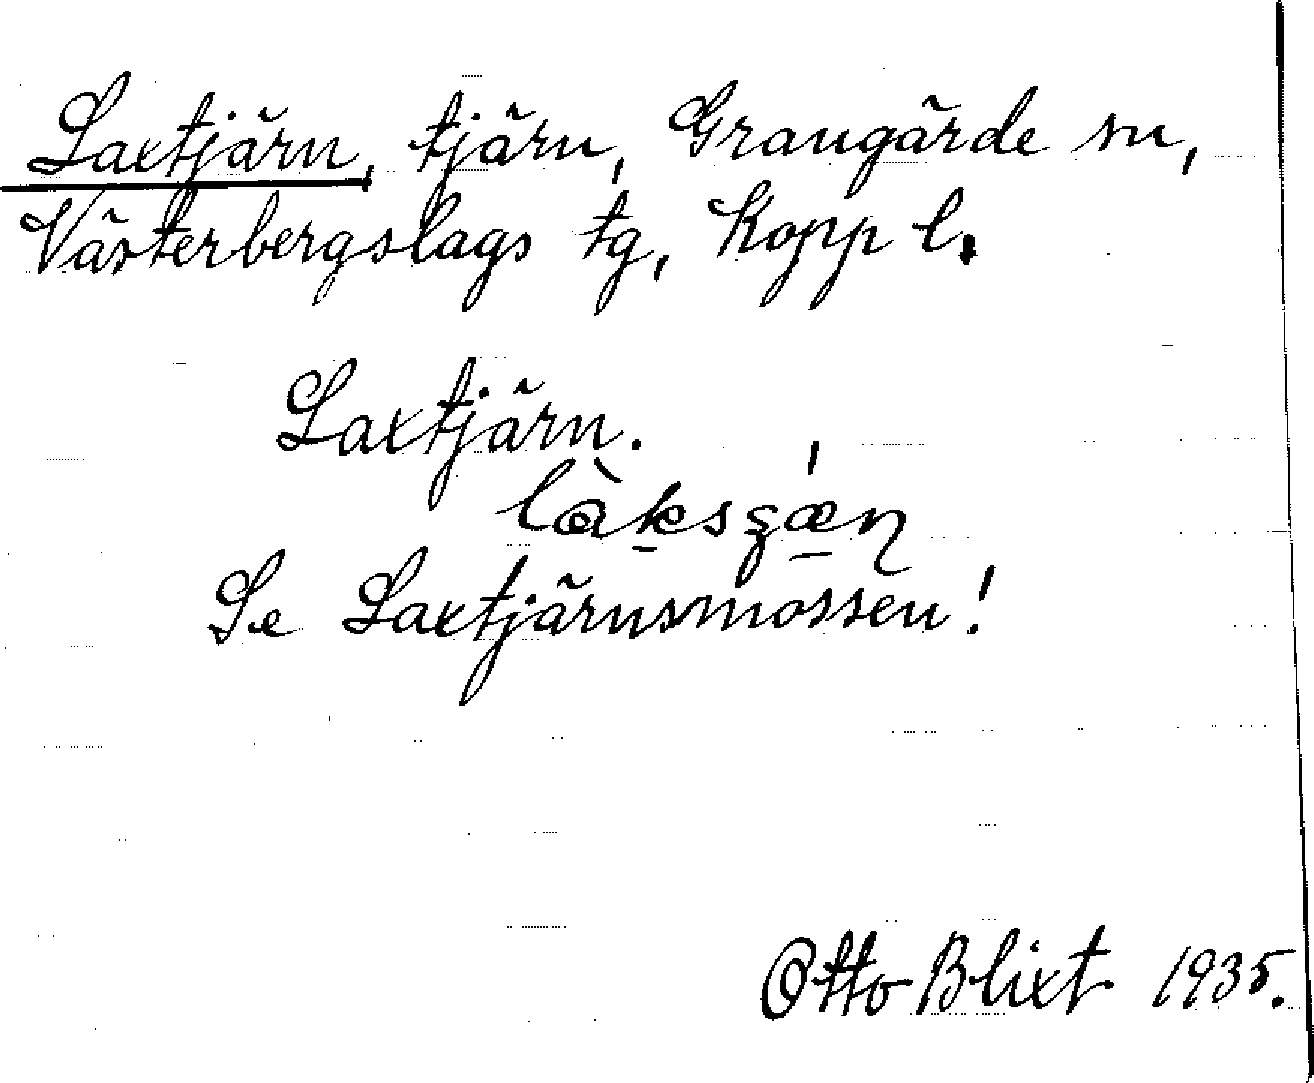 Laxtjärn, tjärn, Grangärde sn,
Västerbergslags tg, Kopp l.
Laxtjärn.
Se Laxtjärnsmossen!
Otto Blixt 1935.